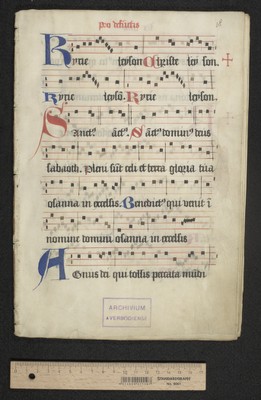 pro defunctis
Kyrie leyson Christe ley son.
Kyrie leyso. Kyrie leyson.
Sanct9 sct9. Sct9 domin9 deus
sabaoth. Pleni sūt celi et terra gloria tua
osanna in excelsis. Benedict9 qui venit ī
nomine domini osanna in excelsis
Agnus dei qui tollis peccata mūdi
ARCHIVUM